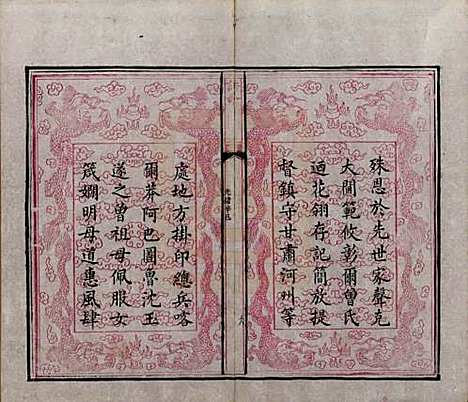 殊恩於先世家聲克
大閫範攸彰爾曾氏
迺花翎存記簡放提
督鎮守甘肅河州等
處地方掛印總兵喀
爾莽阿巴圖魯沈玉
遂之曾祖母佩服女
箴嫻明母道惠風肆